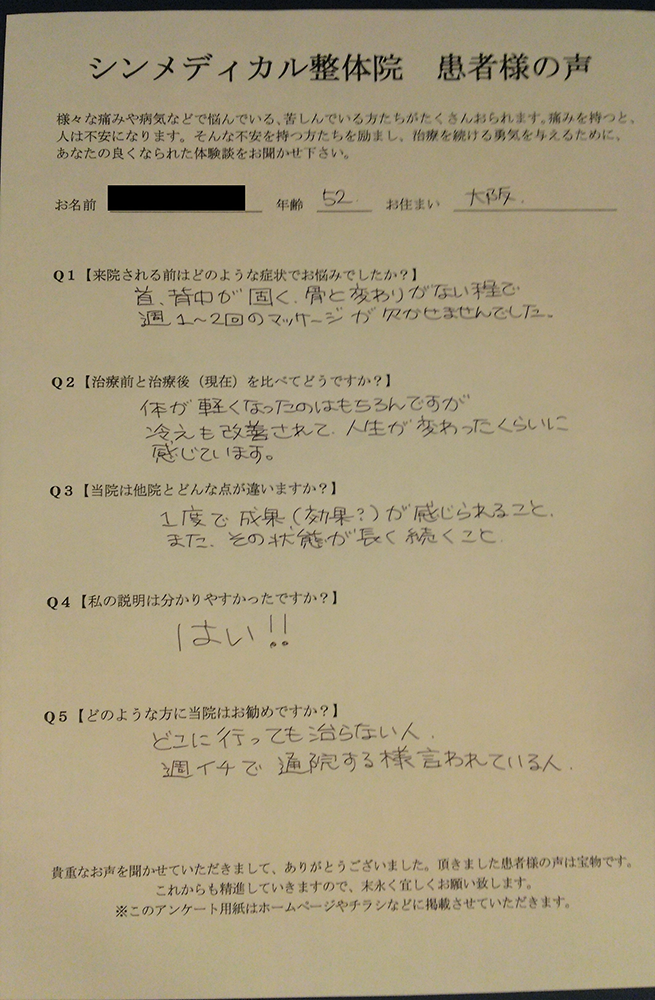 シンメディカル整体院　患者様の声
様々な痛みや病気などで悩んでいる、苦しんでいる方たちがたくさんおられます。痛みを持つと、
人は不安になります。そんな不安を持つ方たちを励まし、治療を続ける勇気を与えるために、
あなたの良くなられた体験談をお聞かせ下さい。
お名前　年齢　52　お住まい　大阪.
Q1【来院される前はどのような症状でお悩みでしたか？】
首、背中が固く、骨と変わりがない程で
週1～2回のマッサージが欠かせませんでした。
Q2【治療前と治療後（現在）を比べてどうですか？】
体が軽くなったのはもちろんですが
冷えも改善されて、人生が変わったくらいに
感じています。
Q3【当院は他院とどんな点が違いますか？】
1度で成果、(効果?)が感じられること、
また、その状態が長く続くこと
Q4【私の説明は分かりやすかったですか？】
はい!!
Q5【どのような方に当院はお勧めですか？】
どこに行っても治らない人.
週イチで通院する様言われている人.
貴重なお声を聞かせていただきまして、ありがとうございました。頂きました患者様の声は宝物です。
これからも精進していきますので、末永く宜しくお願い致します。
※このアンケート用紙はホームページやチラシなどに掲載させていただきます。